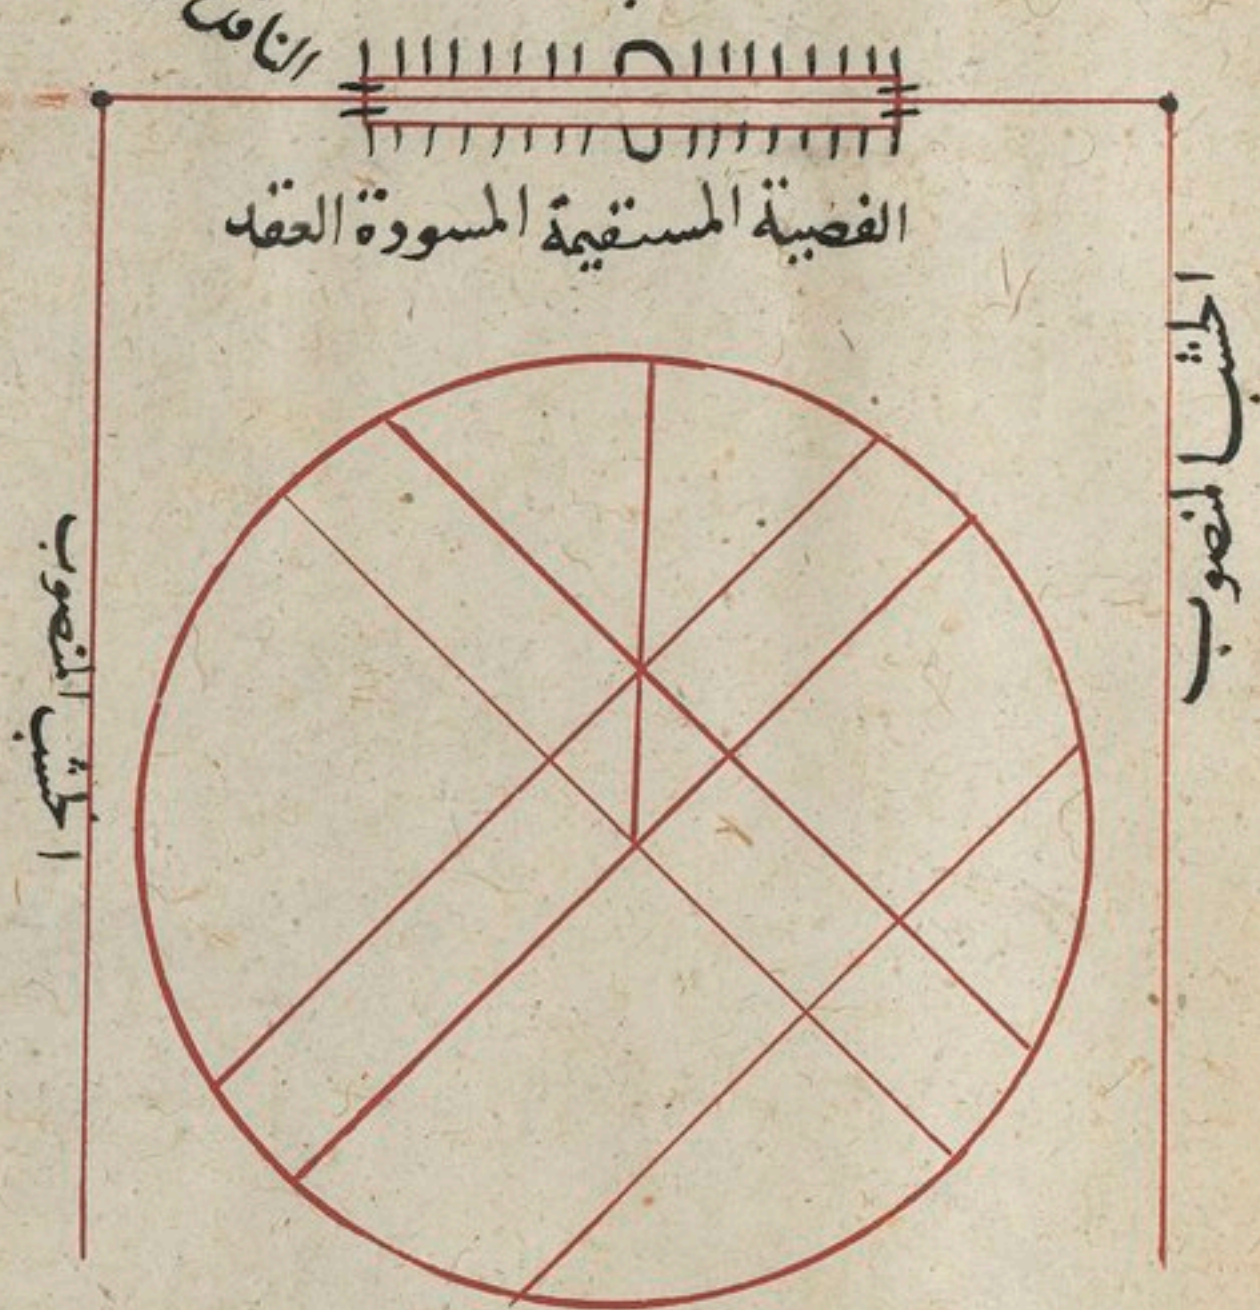 النافذ
القصبة المستقيمة المسودة العقد
الخشب المنصوب
الخشب المنصوب